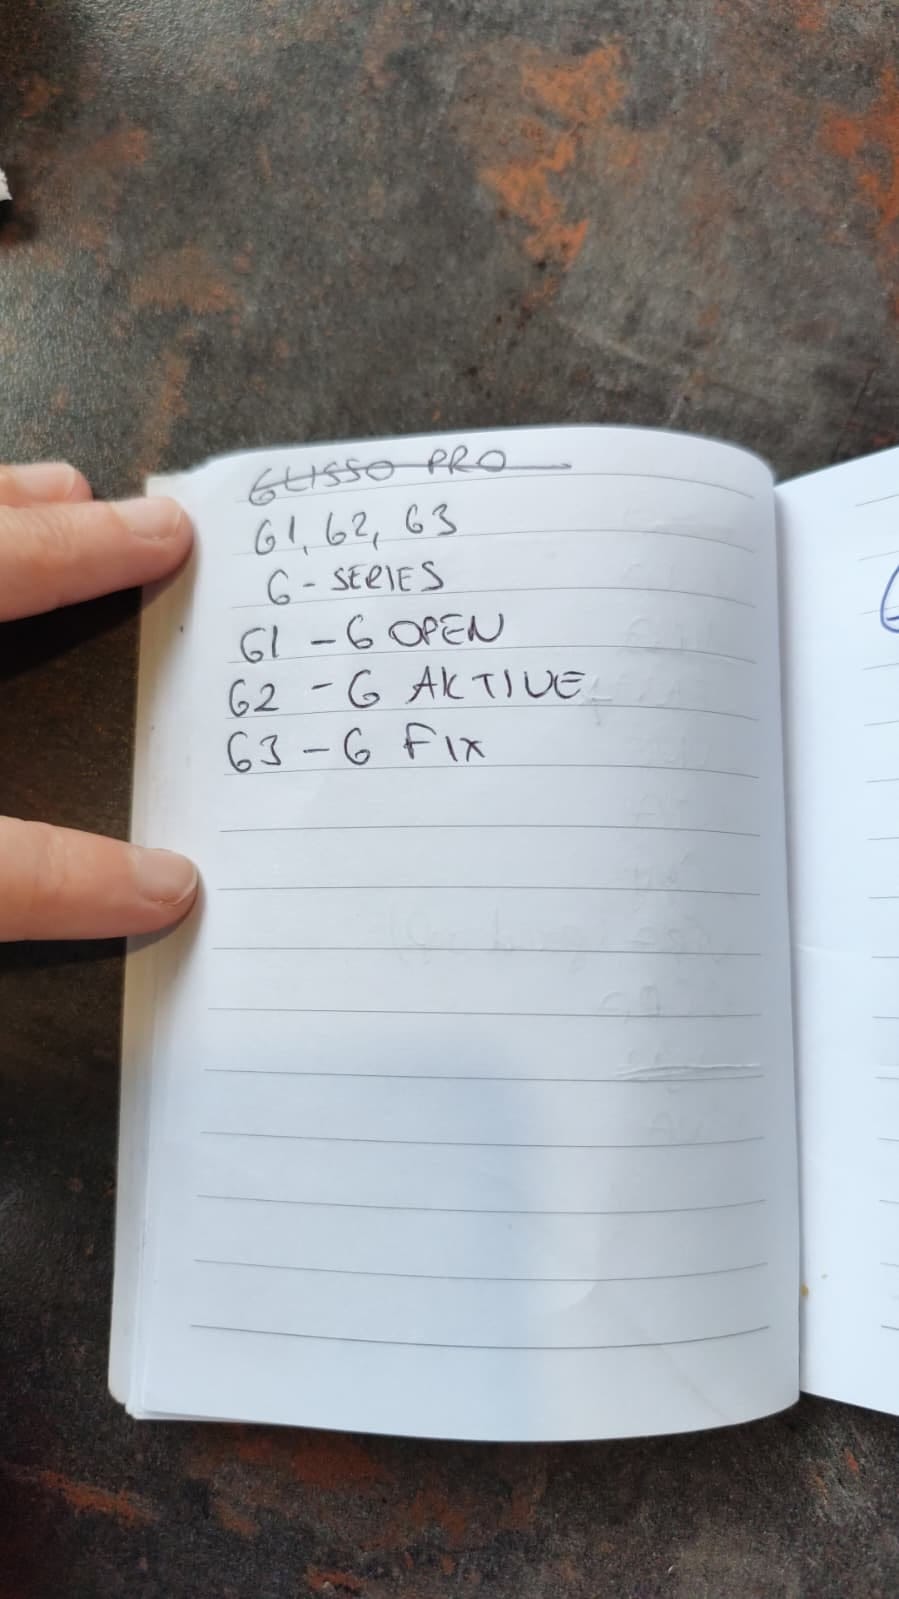 GLISSO PRO
G1, G2, G3
G - SERIES
G1 - G OPEN
G2 - G AKTIVE
G3 - G FIX